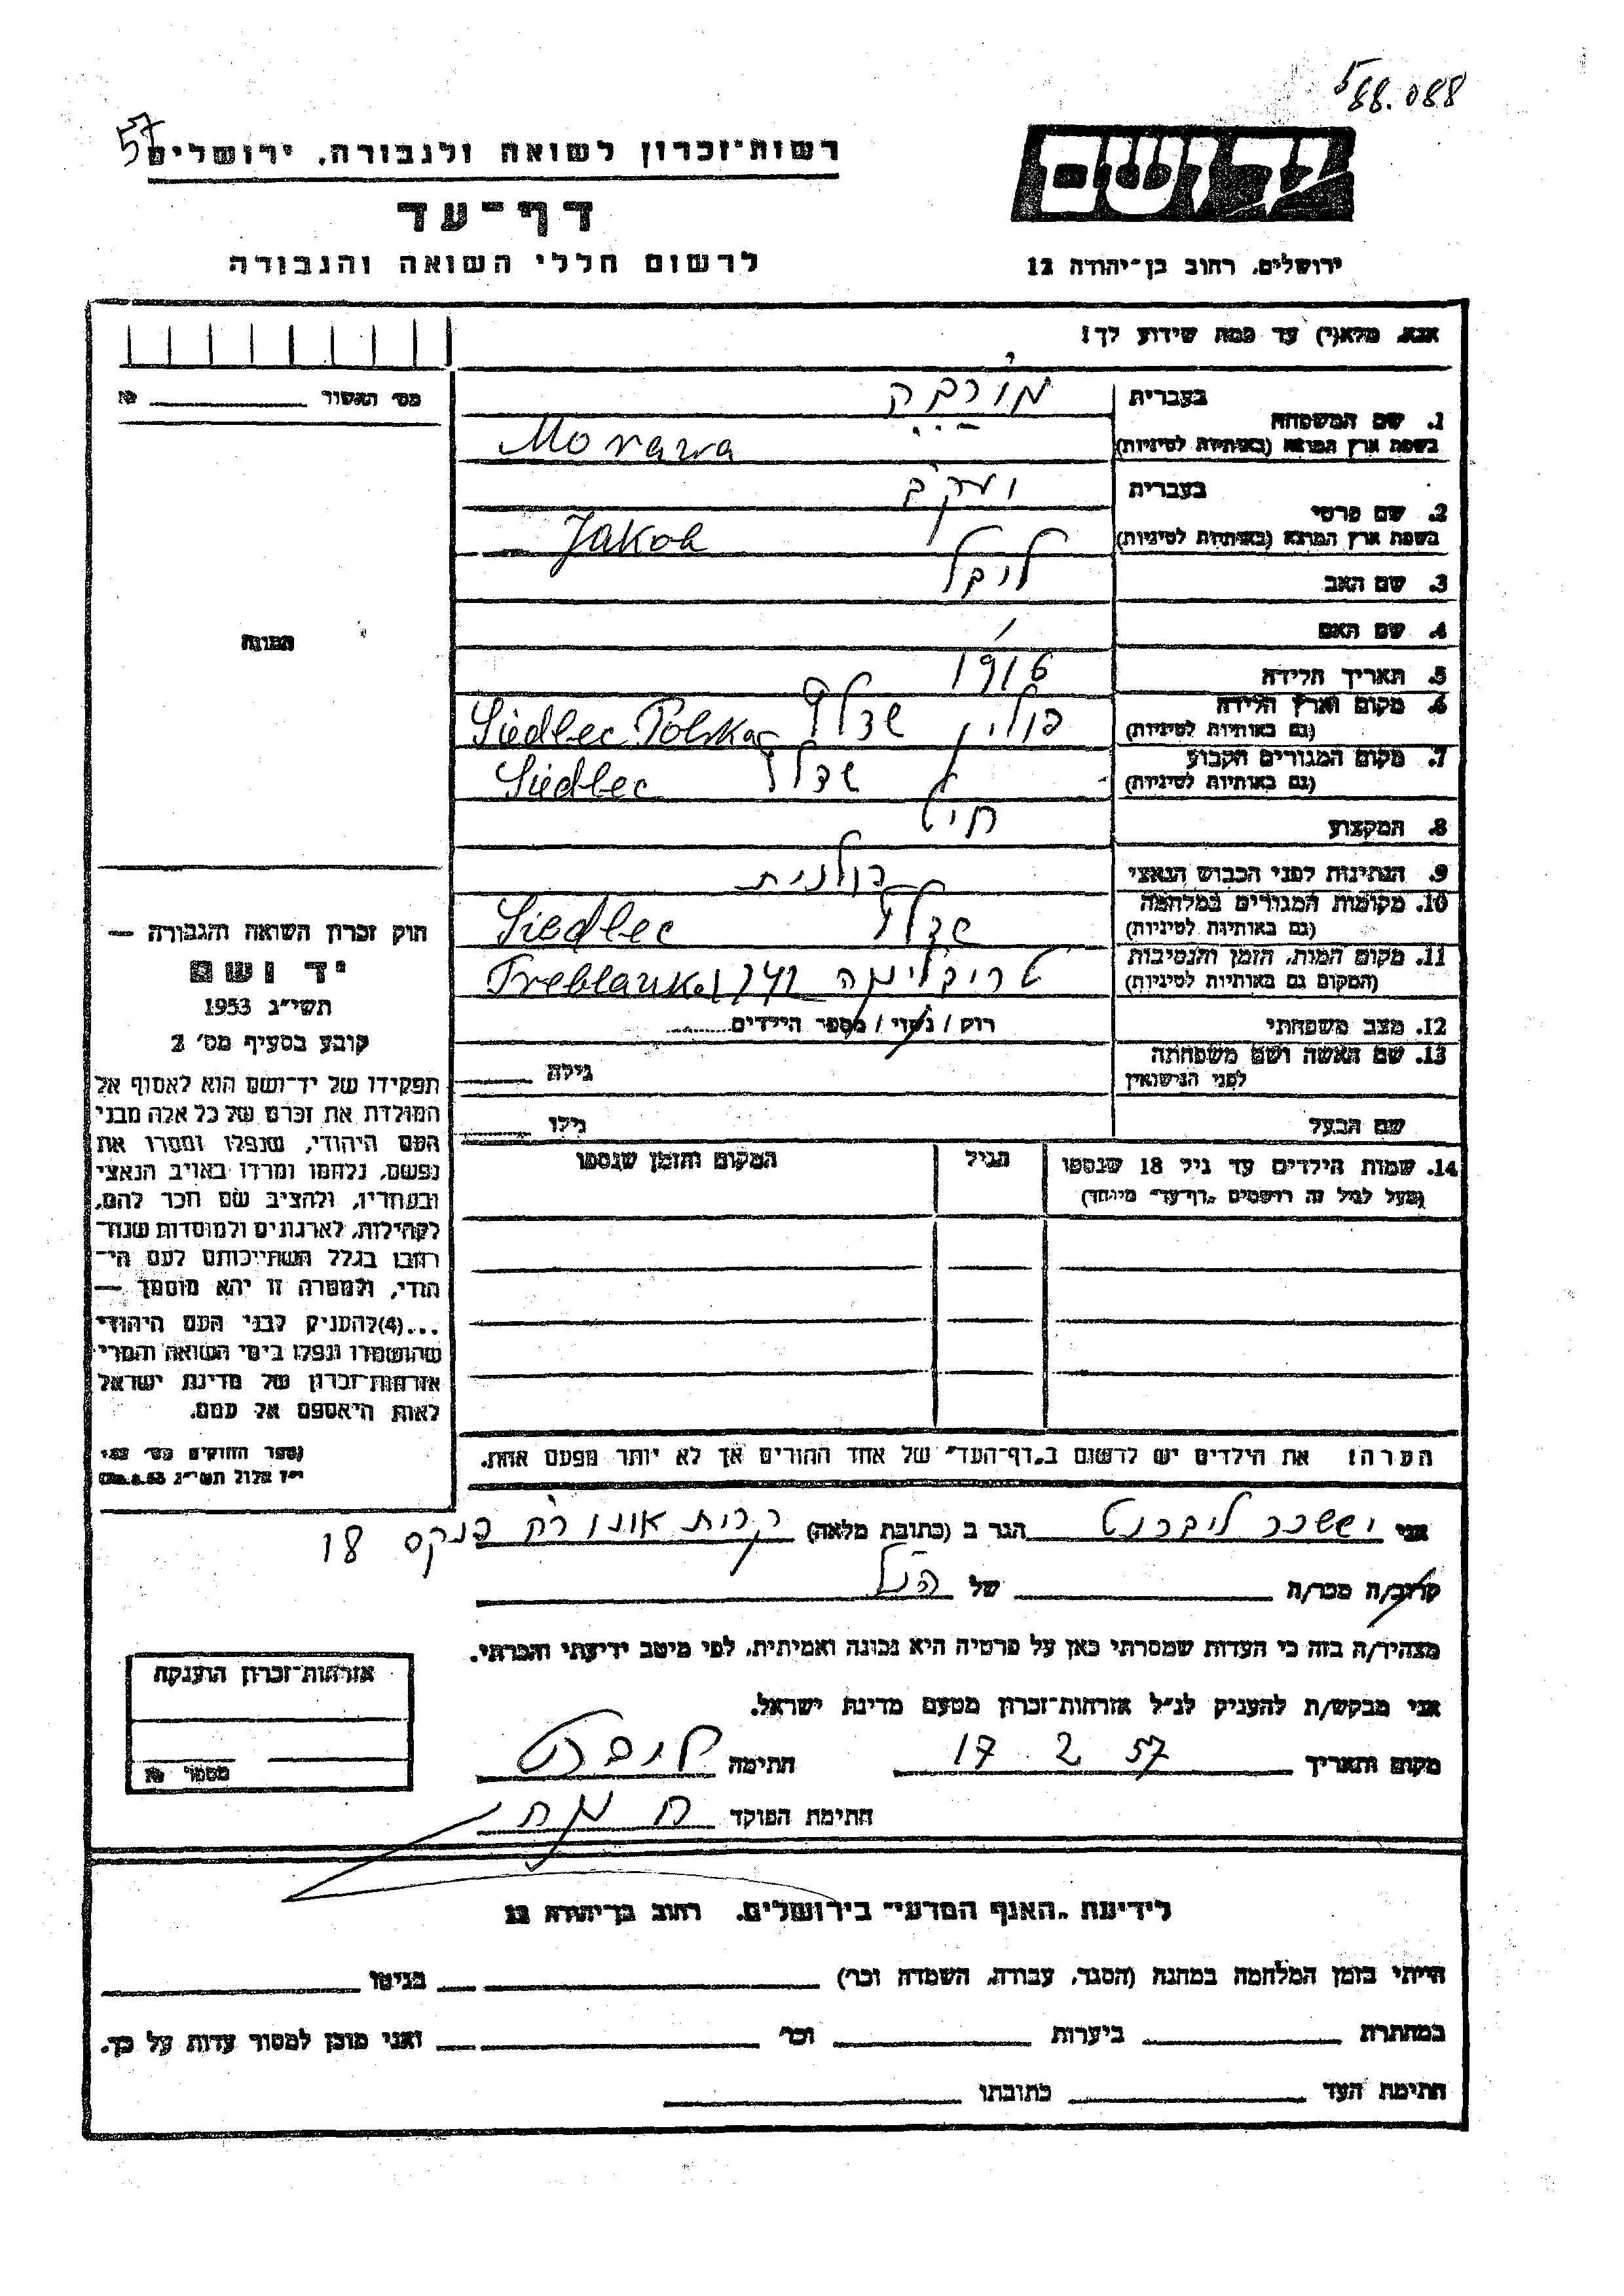 588.088
57
יד ושם
רשות־זכרון לשואה ולגבורה, ירושלים
דף־עד
לרשום חללי השואה והגבורה
ירושלים, רחוב בן־יהודה 12
אנא, מלא(י) עד כמה שידוע לך!
מס׳ האשור № 
1. שם המשפחה בעברית מורבה
בשפת ארץ המוצא (באותיות לטיניות) Morawa
2. שם פרטי בעברית יעקב
בשפת ארץ המוצא (באותיות לטיניות) Jakob
3. שם האב ליבל
4. שם האם
5. תאריך הלידה 1916
6. מקום וארץ הלידה (גם באותיות לטיניות) פולין שדלץ Siedlec Polska
7. מקום המגורים הקבוע (גם באותיות לטיניות) שדלץ Siedlec
8. המקצוע חיט
9. הנתינות לפני הכבוש הנאצי פולנית
10. מקומות המגורים במלחמה (גם באותיות לטיניות) שדלץ Siedlec
11. מקום המות, הזמן והנסיבות (המקום גם באותיות לטיניות) טריבלינקה 1942
12. מצב משפחתי רווק / נשוי / מספר הילדים
13. שם האשה ושם משפחתה לפני הנישואין גילה
שם הבעל גילו
14. שמות הילדים עד גיל 18 שנספו הגיל המקום והזמן שנספו
(מעל לגיל זה רושמים „דף־עד״ מיוחד)
הערה! את הילדים יש לרשום ב„דף־העד״ של אחד ההורים אך לא יותר מפעם אחת.
התמונה
חוק זכרון השואה והגבורה —
יד ושם
תשי״ג 1953
קובע בסעיף מס׳ 2
תפקידו של יד־ושם הוא לאסוף אל
המולדת את זכרם של כל אלה מבני
העם היהודי, שנפלו ומסרו את
נפשם, נלחמו ומרדו באויב הנאצי
ובעוזריו, ולהציב שם וזכר להם,
לקהילות, לארגונים ולמוסדות שנח־
רבו בגלל השתייכותם לעם הי־
הודי, ולמטרה זו יהא מוסמך —
...(4)להעניק לבני העם היהודי
שהושמדו ונפלו בימי השואה והמרי
אזרחות־זכרון של מדינת ישראל
לאות היאספם אל עמם.
(ספר החוקים מס׳ 132
י״ז אלול תשי״ג 28.8.53)
אני יששכר ליברנט הגר ב (כתובת מלאה) קרית אונו רח פנקס 18
קרוב/ה מכר/ה של הנ״ל
מצהיר/ה בזה כי העדות שמסרתי כאן על פרטיה היא נכונה ואמיתית, לפי מיטב ידיעתי והכרתי.
אני מבקש/ת להעניק לנ״ל אזרחות־זכרון מטעם מדינת ישראל.
מקום ותאריך 17 2 57 חתימה
חתימת הפוקד
אזרחות־זכרון הוענקה
מספר №
לידיעת „האגף המדעי״ בירושלים, רחוב בן־יהודה 12
הייתי בזמן המלחמה במחנה (הסגר, עבודה, השמדה וכו׳) בגיטו
במחתרת ביערות וכו׳ ואני מוכן למסור עדות על כך.
חתימת העד כתובתו